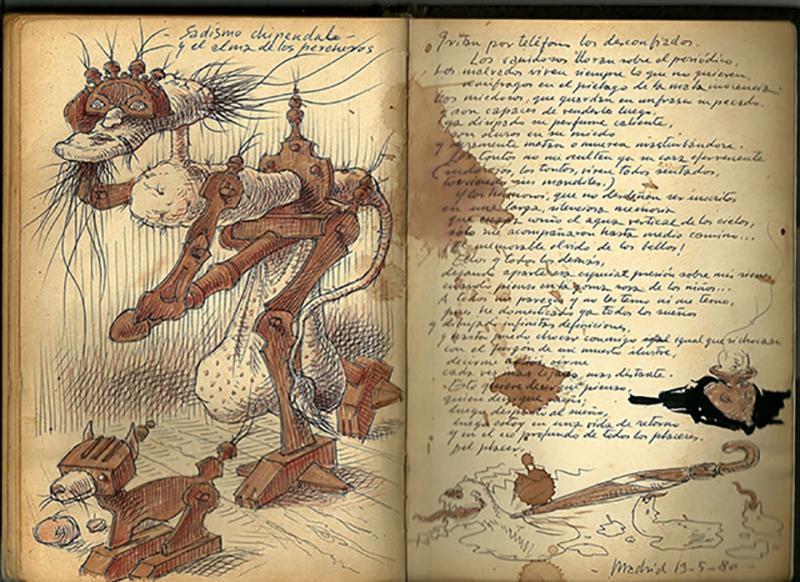 - Sadismo chipendale -
y el alma de los percheros
Gritan por teléfono los desconfiados.
Los vanidosos lloran sobre el periódico,
los malvados viven siempre lo que no quieren,
náufragos en el piélago de la mala
Los miedosos, que guardan en un frasco su pecado.
y son capaces de venderlo luego,
ya disipado su perfume caliente,
son duros en su miedo
y raramente matan o mueren masturbándose.
Los tontos no me ocultan ya su cara efervescente
los tontos, viven todos sentados,
sus mandiles.)
Y los hermosos, que no desdeñan ser inscritos
en una larga, silenciosa memoria
que como el agua vertical de los cielos,
solo me acompañaron hasta medio camino...
¡El memorable olvido de los bellos!
Ellos y todos los demás,
dejando aparte esa especial presión sobre mis sienes
cuando pienso en la goma rosa de los niños...
A todos me parezco y no les temo ni me temo,
pues he domesticado ya todos los sueños
y dibujado infinitas definiciones,
y hasta puedo chocar conmigo igual que si chocara
con el furgón de un muerto ilustre,
decirme adiós, oirme
cada vez más lejano, más distante.
Esto quiere decir que pienso,
quien dice que
luego despierto al sueño,
luego estoy en una vida de retorno
y en el eco profundo de todos los placeres.
del placer.
- Madrid 13-5-80 -